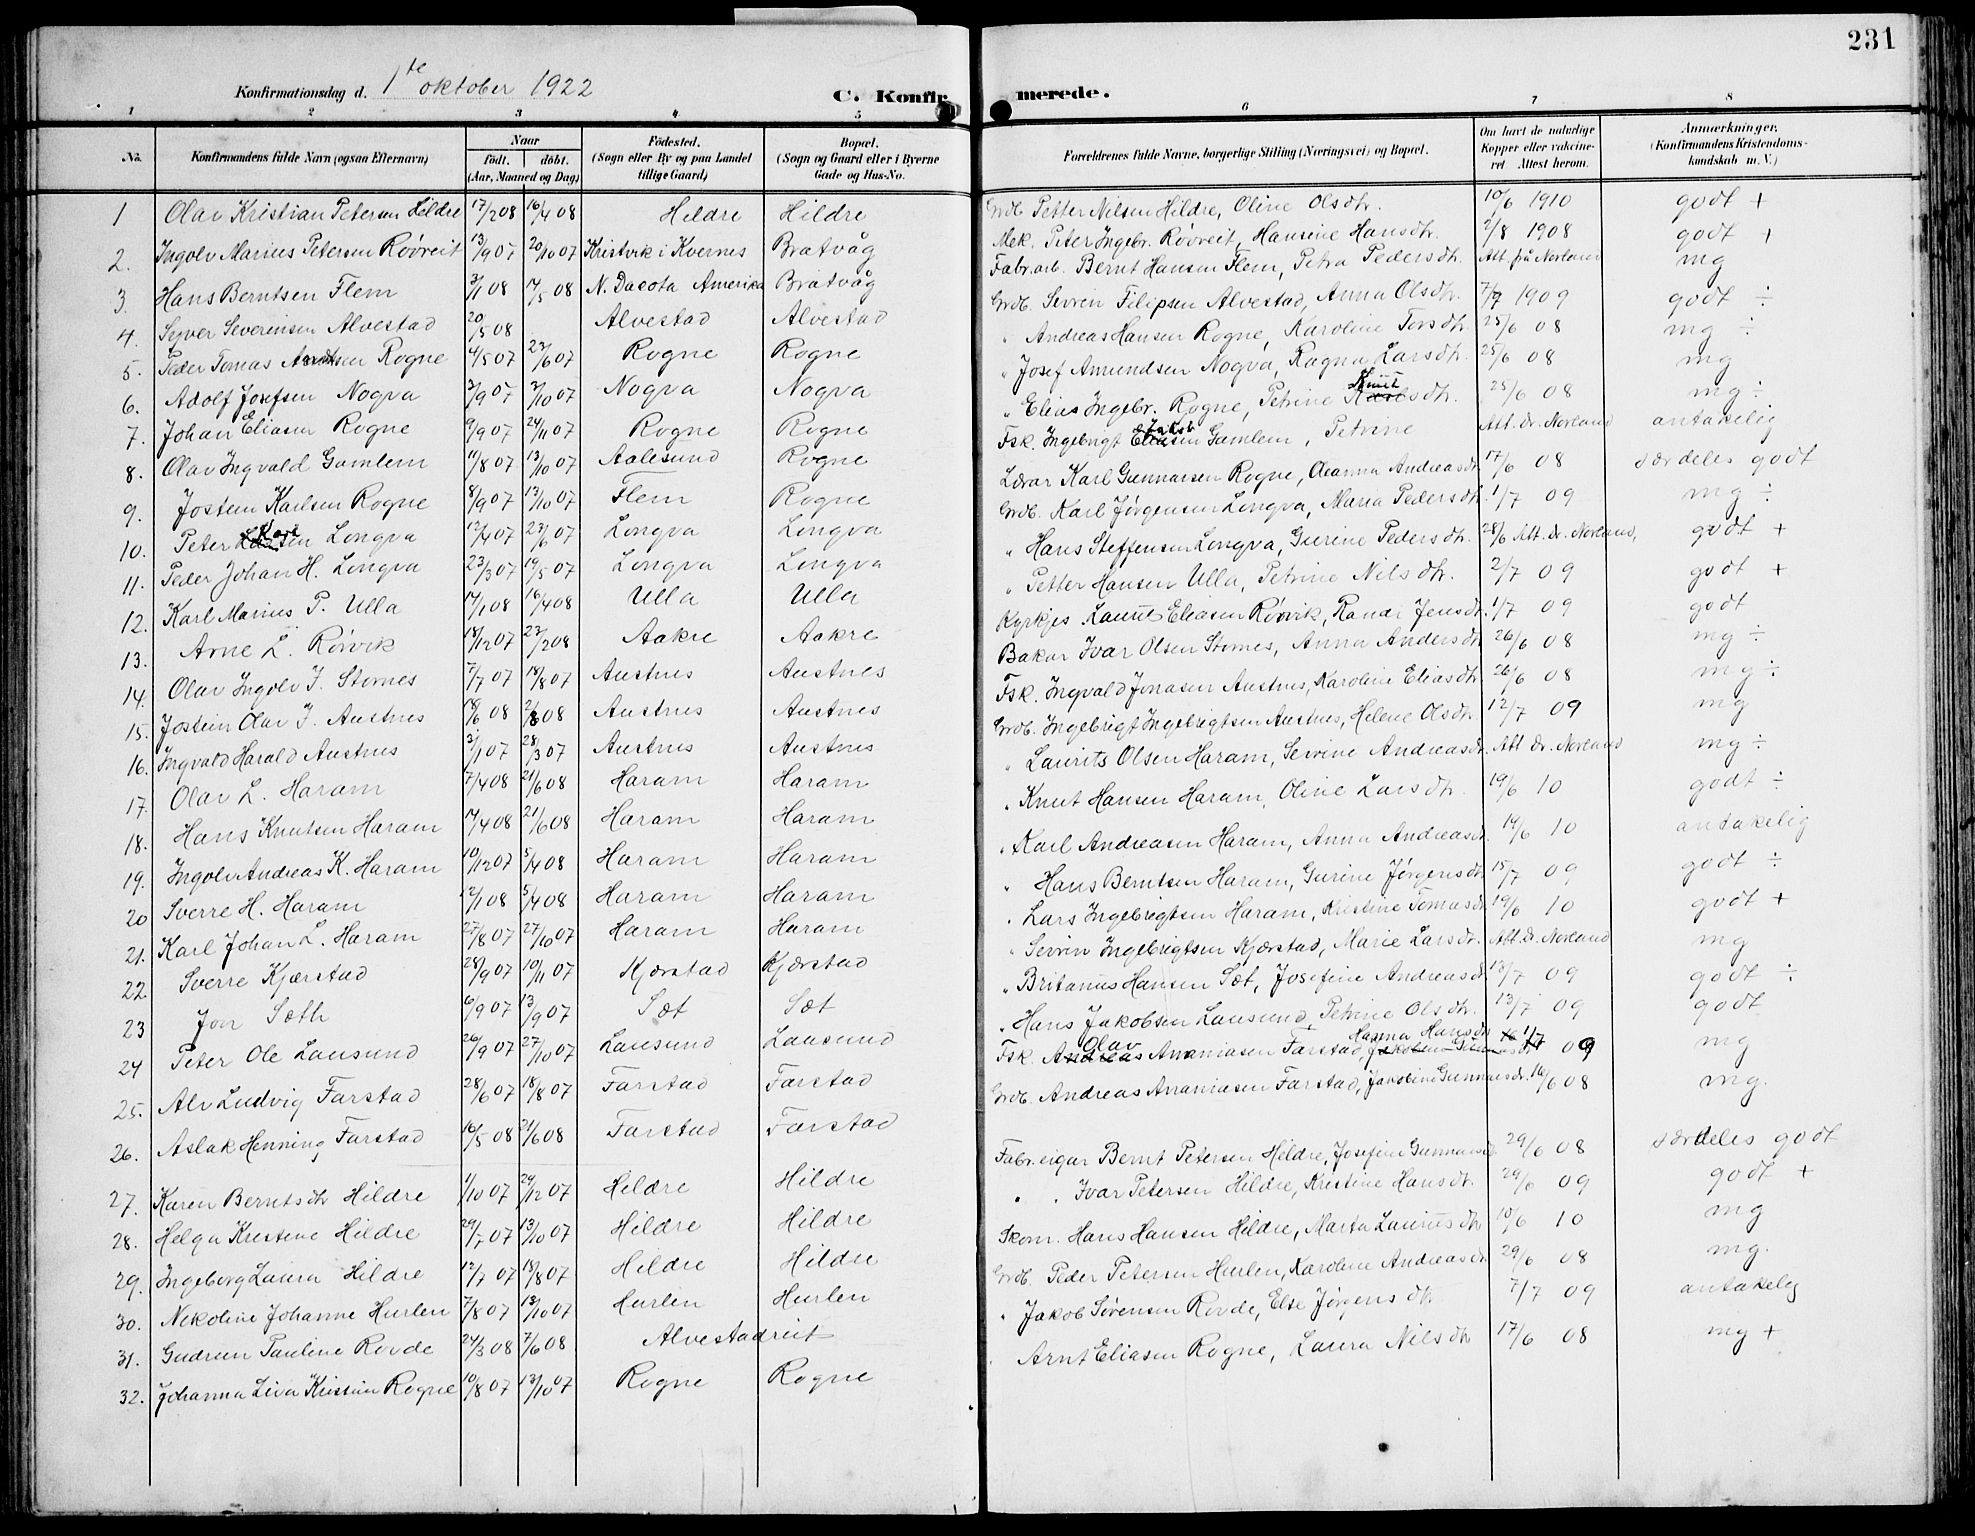 231
Konfirmationsdag d. 1te oktober 1922
C. Konfirmerede.
1 2 3 4 5 6 7 8
No. Konfirmandens fulde Navn (ogsaa Efternavn) Naar født. døbt. (Aar, Maaned og Dag) Fødested. (Sogn eller By og paa Landet tillige Gaard) Bopæl. (Sogn og Gaard eller i Byerne Gade og Hus-No. Forældrenes fulde Navne, borgerlige Stilling (Næringsvei) og Bopæl. Om havt de naturlige Kopper eller vakcineret Attest herom. Anmærkninger. (Konfirmandens Kristendomskundskab m. V.)
1 Olav Kristian Petersen Hildre 17/2 08 16/4 08 Hildre Hildre Grdb. Petter Nilsen Hildre, Oline Olsdtr. 10/6 1910 godt +
2. Ingolv Marius Petersen Røvreit 13/9 07 20/10 07 Kristvik i Kvernes Bratvåg Mek. Peter Ingebr. Røvreit, Hansine Hansdtr. 1/8 1908 godt +
3. Hans Berntsen Flem 3/1 08 17/5 08 N. Dacota Amerika Bratvåg Fabr.arb. Bernt Hansen Flem, Petra Pedersdtr. Att. frå Norland mg
4. Syver Severinsen Alvestad 20/5 08 Alvestad Alvestad Grdb. Sevrin Filipsen Alvestad, Anna Olsdtr. 7/7 1909 godt ÷
5. Peder Tomas Rogne 4/5 07 23/6 07 Rogne Rogne " Andreas Hansen Rogne, Karoline Torsdtr. 25/6 08 mg ÷
6. Adolf Josefsen Nogva 3/9 07 3/10 07 Nogva Nogva " Josef Amundsen Nogva, Ragna Larsdtr. 25/6 08 mg
7. Johan Eliasen Rogne 9/9 07 24/11 07 Rogne Rogne " Elias Ingebr. Rogne, Petrine Knutsdtr. 25/6 08 mg ÷
8. Olav Ingvald Gamlem 11/8 07 13/10 07 Aalesund Rogne Fsk. Ingebrigt Jakobsen Gamlem, Petrine Att. dr. Norland antakelig
9. Jostein Karlsen Rogne 8/9 07 13/10 07 Flem Rogne Lærar Karl Gunnarsen Rogne, Oleanna Andreasdtr. 17/6 08 særdeles godt
10. Peter Karlsen Longva 12/4 07 23/6 07 Longva Longva Grdb. Karl Jørgensen Longva, Maria Pedersdtr. 1/7 09 mg ÷
11. Peder Johan H. Longva 23/3 07 19/5 07 Longva Longva " Hans Steffensen Longva, Gurine Pedersdtr. 28/6 Att. dr. Norland, godt +
12. Karl Marius P. Ulla 17/1 08 16/4 08 Ulla Ulla " Petter Hansen Ulla, Petrine Nilsdtr. 2/7 09 godt +
13. Arne L. Rørvik 18/12 07 23/2 08 Aakre Aakre Kyrkjes Eliasen Rørvik, Randi Jensdtr. 1/7 09 godt
14. Olav Ingolv I. Stornes 7/7 07 18/8 07 Austnes Austnes Bakar Ivar Olsen Stornes, Anna Andersdtr. 26/6 08 mg ÷
15. Jostein Olav I. Austnes 18/6 08 2/8 08 Austnes Austnes Fsk. Ingvald Jonasen Austnes, Karoline Eliasdtr. 26/6 08 mg ÷
16. Ingvald Harald Austnes 3/1 07 28/3 07 Austnes Austnes Grdb. Ingebrigt Ingebrigtsen Austnes, Helene Olsdtr. 12/7 09 mg
17. Olav L. Haram 7/4 08 21/6 08 Haram Haram " Laurits Olsen Haram, Sevrine Andreasdtr. Att dr. Norland mg ÷
18. Hans Knutsen Haram 14/4 08 21/6 08 Haram Haram " Knut Hansen Haram, Oline Larsdtr. 19/6 10 godt ÷
19. Ingolv Andreas K. Haram 10/12 07 5/4 08 Haram Haram " Karl Andreasen Haram, Anna Andreasdtr. 19/6 10 antakelig
20 Sverre H. Haram 12/1 08 5/4 08 Haram Haram " Hans Berntsen Haram, Gurine Jørgensdtr 15/7 09 godt ÷
21. Karl Johan L. Haram 27/8 07 27/10 07 Haram Haram " Lars Ingebrigtsen Haram, Kristine Tomasdtr 19/6 10 godt +
22. Sverre Kjærstad 28/9 07 10/11 07 Kjærstad Kjærstad " Sevrin Ingebrigtsen Kjærstad, Marie Larsdtr. Att. dr. Norland mg
23 Jon Sæth 6/9 07 13/9 07 Sæt Sæt " Britanus Hansen Sæt, Josefine Andreasdtr 13/7 09 godt ÷
24 Peter Ole Lausund 26/9 07 27/10 07 Lausund Lausund " Hans Jakobsen Lausund, Petrine Olsdtr. 13/7 09 godt
25. Alv Ludvig Farstad 28/6 07 18/8 07 Farstad Farstad Fsk. Olav Ananiasen Farstad, Hanna Hansdtr 1/7 09 mg
26. Aslak Henning Farstad 16/5 08 21/6 08 Farstad Farstad Grdb. Andreas Ananiasen Farstad, Jakobine Gunnarsdtr. 16/6 08 mg.
27. Karen Berntsdtr Hildre 1/10 07 29/12 07 Hildre Hildre Fabr.eigar Bernt Petersen Hildre, Josefine Gunnarsdtr. 29/6 08 særdeles godt
28. Helga Kristine Hildre 29/7 07 13/10 07 Hildre Hildre " " Ivar Petersen Hildre, Kristine Hansdtr. 29/6 09 godt +
29. Ingeborg Laura Hildre 12/7 07 18/8 07 Hildre Hildre Skom. Hans Hansen Hildre, Marta Lauritsdtr 10/6 10 mg
30. Nikoline Johanne Hurlen 7/8 07 13/10 07 Hurlen Hurlen Grdb. Peder Petersen Hurlen, Karoline Andreasdtr. 29/6 08 mg.
31. Gudrun Pauline Rovde 24/3 08 7/6 08 Alvestadreit " Jakob Sørensen Rovde, Else Jørgensdtr. 7/7 09 antakelig
32. Johanna Liva Kristine Rogne 10/8 07 13/10 07 Rogne Rogne " Arnt Eliasen Rogne, Laura Nilsdtr 17/6 08 mg +